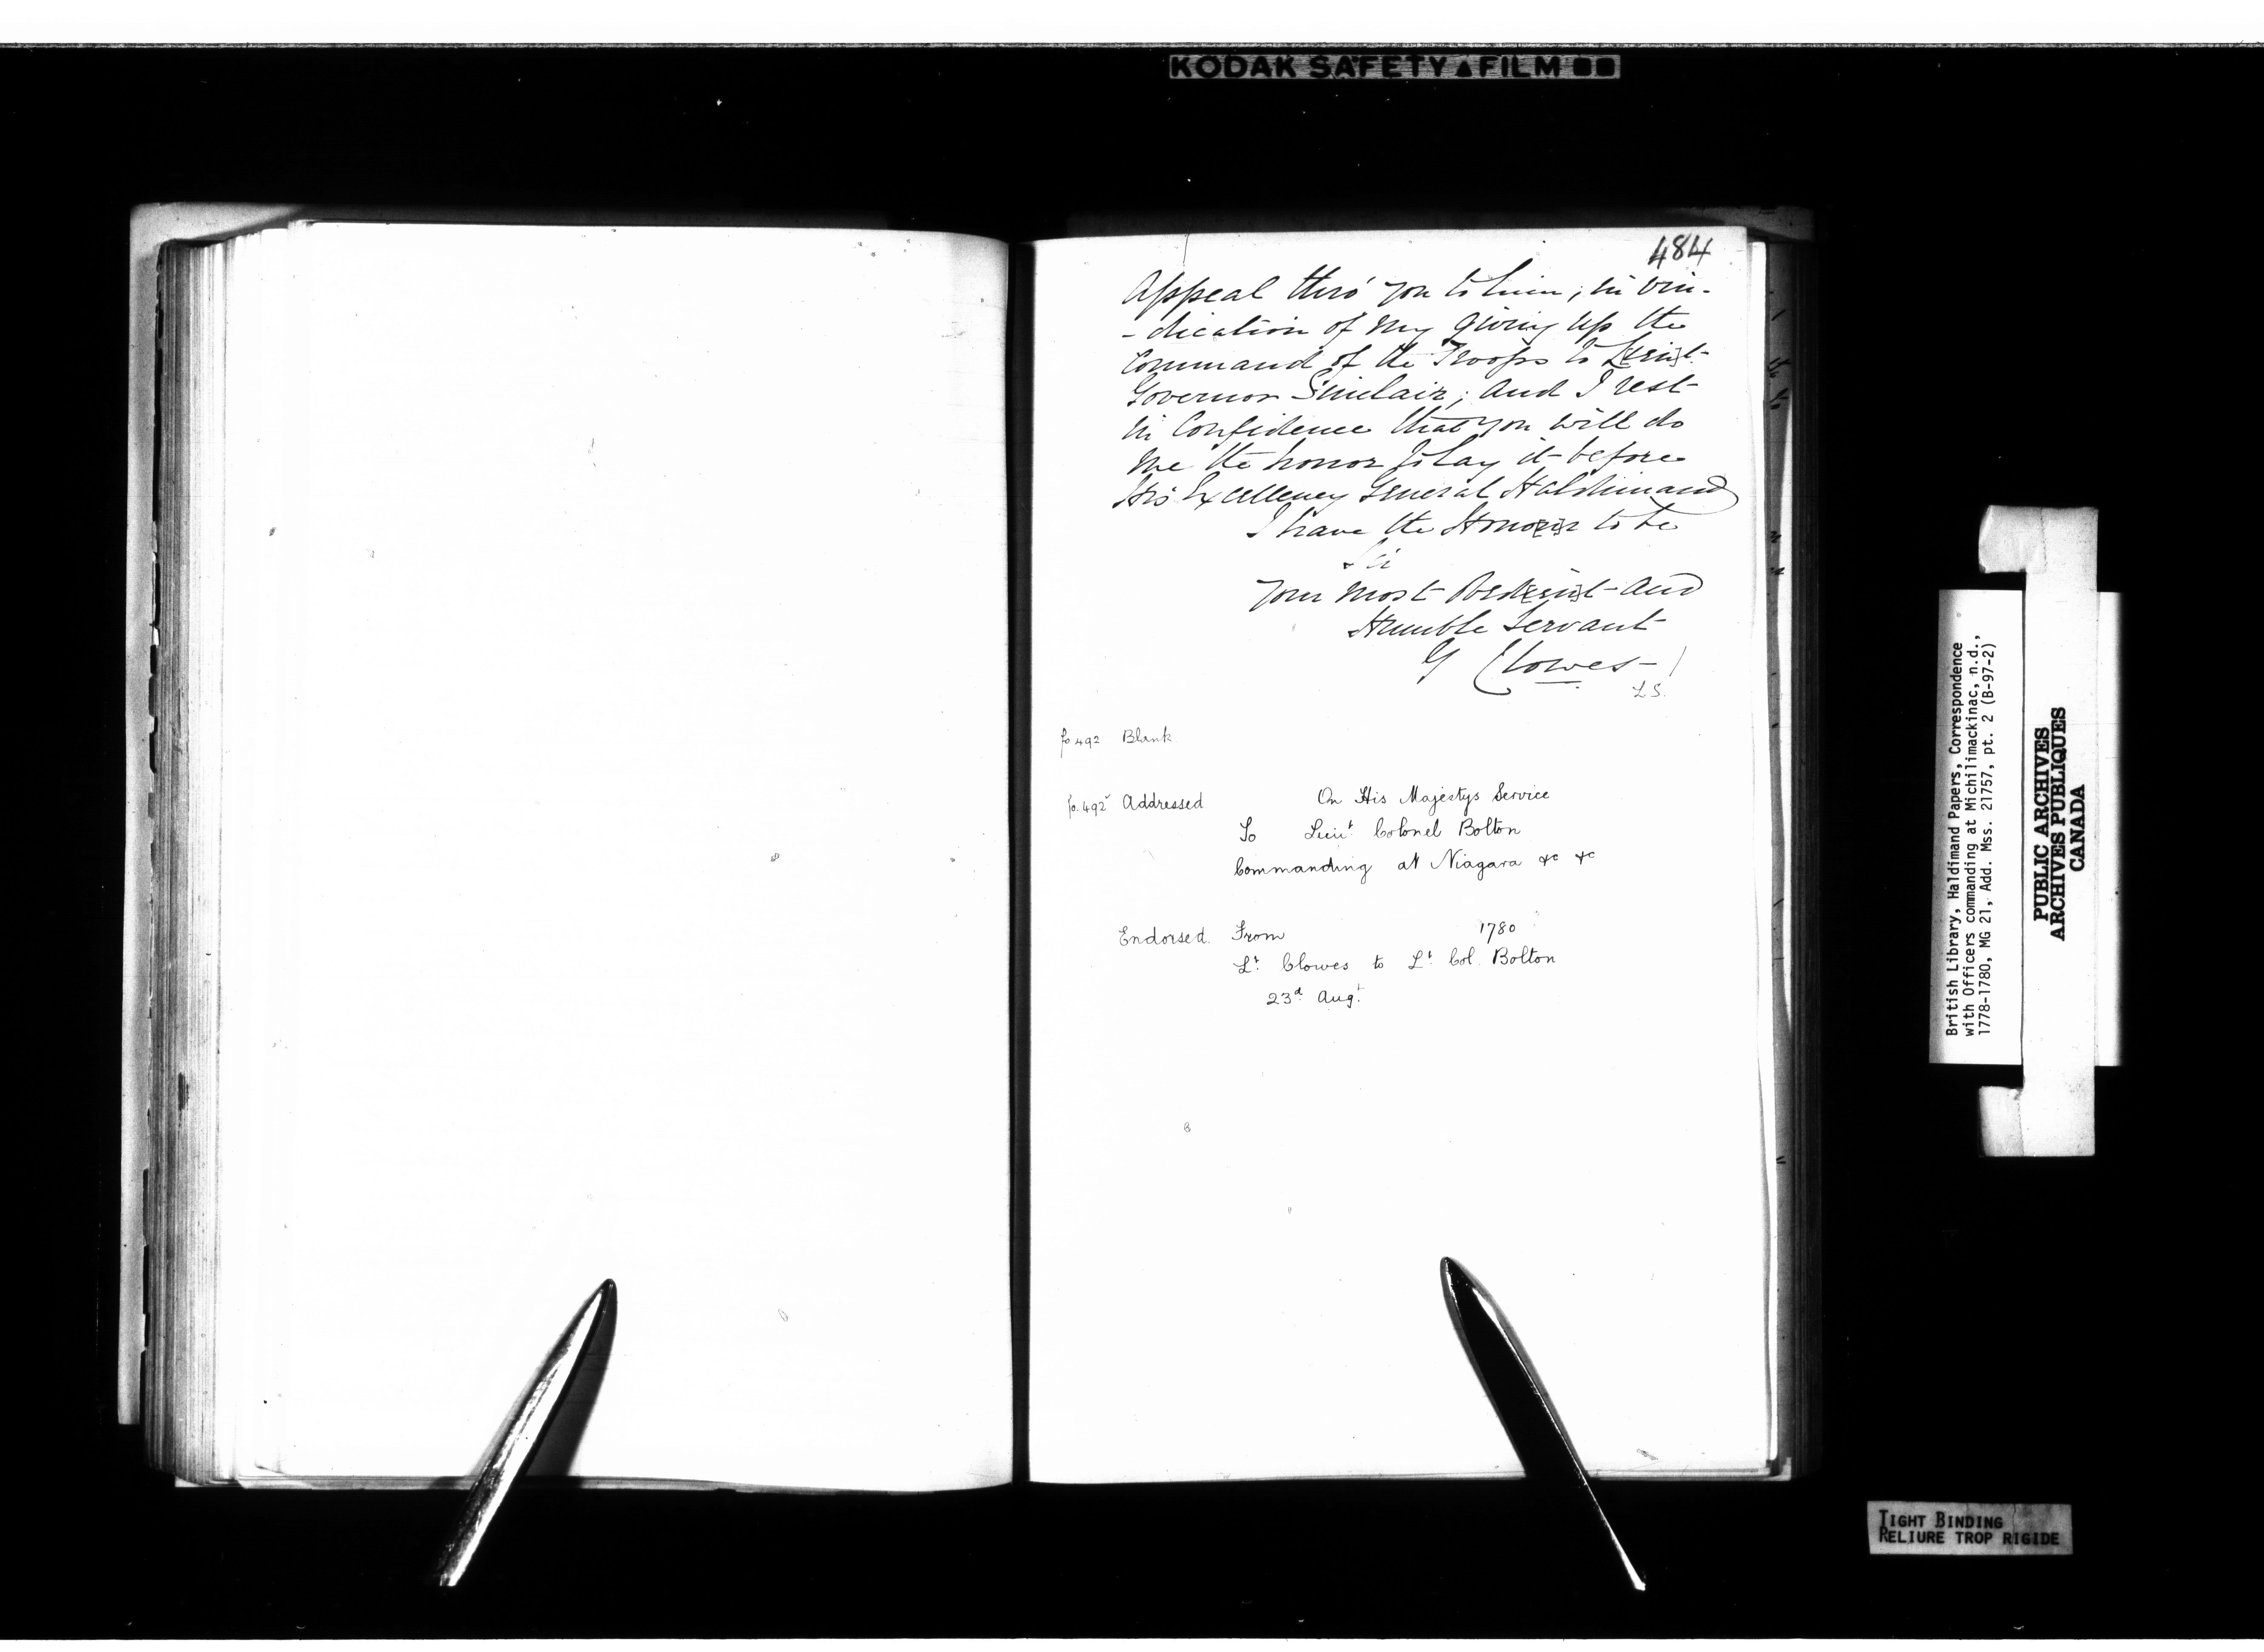 KODAK SAFETY FILM
484
Appeal thro' you to him; in vin-
-dication of my giving up the
Command of the Troops to L[eiu]t
Governor Sinclair; and I rest
in Confidence that you will do
me the honor to lay it before
His Excellency General Haldimand
I have the Hono[u]r to be
Sir
Your most Obed[ien]t and
Humble Servant
G Clowes
L S.
fo 492 Blank
fo. 492v Addressed On His Majestys Service
To Lieut. Colonel Bolton
Commanding at Niagara &c &c
Endorsed. From 1780
Lt. Clowes to Lt. Col. Bolton
23d Augt.
British Library, Haldimand Papers, Correspondence
with Officers commanding at Michilimackinac, n.d.,
1778-1780, MG 21, Add. Mss. 21757, pt. 2 (B-97-2)
PUBLIC ARCHIVES
ARCHIVES PUBLIQUES
CANADA
TIGHT BINDING
RELIURE TROP RIGIDE